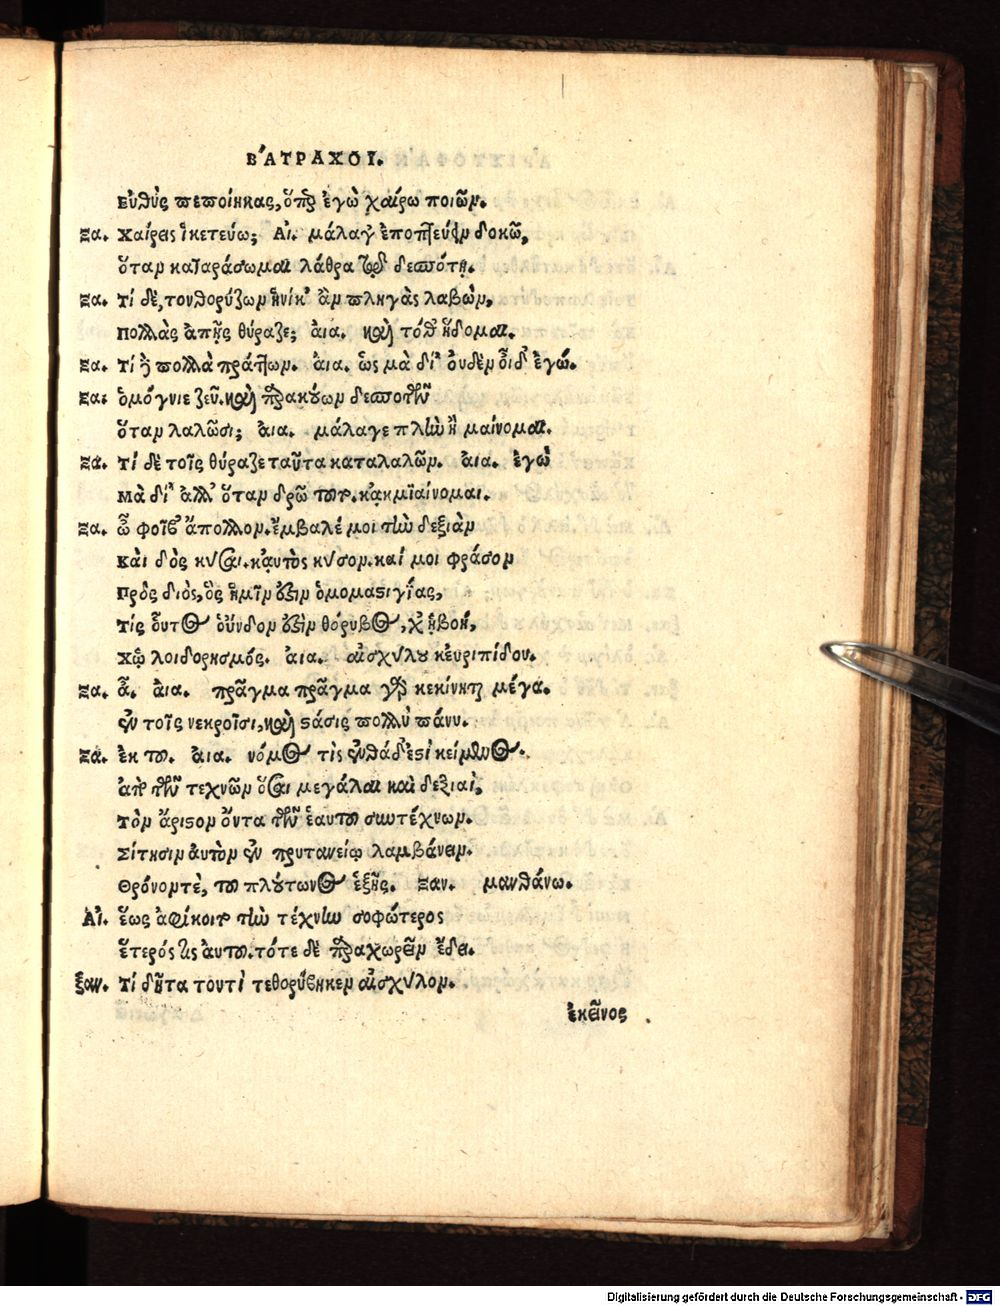 ΒΑΤΡΑΧΟΙ.
Εὐθὺς πεποίηκας, ὅπερ ἐγὼ χαίρω ποιῶν.
Ξα. Χαίρεις ἱκετεύω; Αι. μάλαγ' ἐποπτεύειν δοκῶ,
ὅταν καταράσωμαι λάθρα τῷ δεσπότῃ.
Ξα. Τί δὲ, τονθορύζων ἡνίκ' ἂν πληγὰς λαβὼν,
Πολλὰς ἀπῄς θύραζε; αια. καὶ τόθ' ἥδομαι.
Ξα. Τί δὲ πολλὰ πράττων. αια. ὡς μὰ δί' οὐδὲν οἶδ' ἐγώ.
Ξα. ὁμόγνιε ζεῦ. καὶ παρακούων δεσποτῶν
ὅταν λαλῶσι; αια. μάλαγε πλὴν ἢ μαίνομαι.
Ξα. Τί δὲ τοῖς θύραζε ταῦτα καταλαλῶν. αια. ἐγὼ
Μὰ δί' ἀλλ' ὅταν δρῶ τοῦτο. κᾀκμιαίνομαι.
Ξα. ὦ φοῖβ' ἄπολλον. ἔμβαλέ μοι τὴν δεξιὰν
Καὶ δὸς κύσαι. καὐτὸς κύσον. καί μοι φράσον
Πρὸς διὸς, ὃς ἡμῖν ἐστιν ὁμομαστιγίας,
Τίς οὗτος οὕνδον ἐστὶν θόρυβος, χἠ βοή,
Χᾠ λοιδορησμός. αια. αἰσχύλου κεὐριπίδου.
Ξα. ἆ. αια. πρᾶγμα πρᾶγμα γὰρ κεκίνηται μέγα.
ἐν τοῖς νεκροῖσι, καὶ στάσις πολλὺ πάνυ.
Ξα. ἐκ του. αια. νόμος τὶς ἐνθάδ' ἐστὶ κείμενος.
ἀπὸ τῶν τεχνῶν ὅσαι μεγάλαι καὶ δεξιαὶ,
Τὸν ἄριστον ὄντα τῶν ἑαυτοῦ συντέχνων.
Σίτησιν αὐτὸν ἐν πρυτανείῳ λαμβάνειν.
Θρόνοντὲ, τοῦ πλούτωνος ἑξῆς. Ξαν. μανθάνω.
Αι. ἕως ἀφίκοιτο τὴν τέχνην σοφώτερος
ἕτερός τις αὐτοῦ. τότε δὲ παραχωρεῖν ἔδει.
Ξαν. Τί δῆτα τουτὶ τεθορύβηκεν αἰσχύλον.
ἐκεῖνος